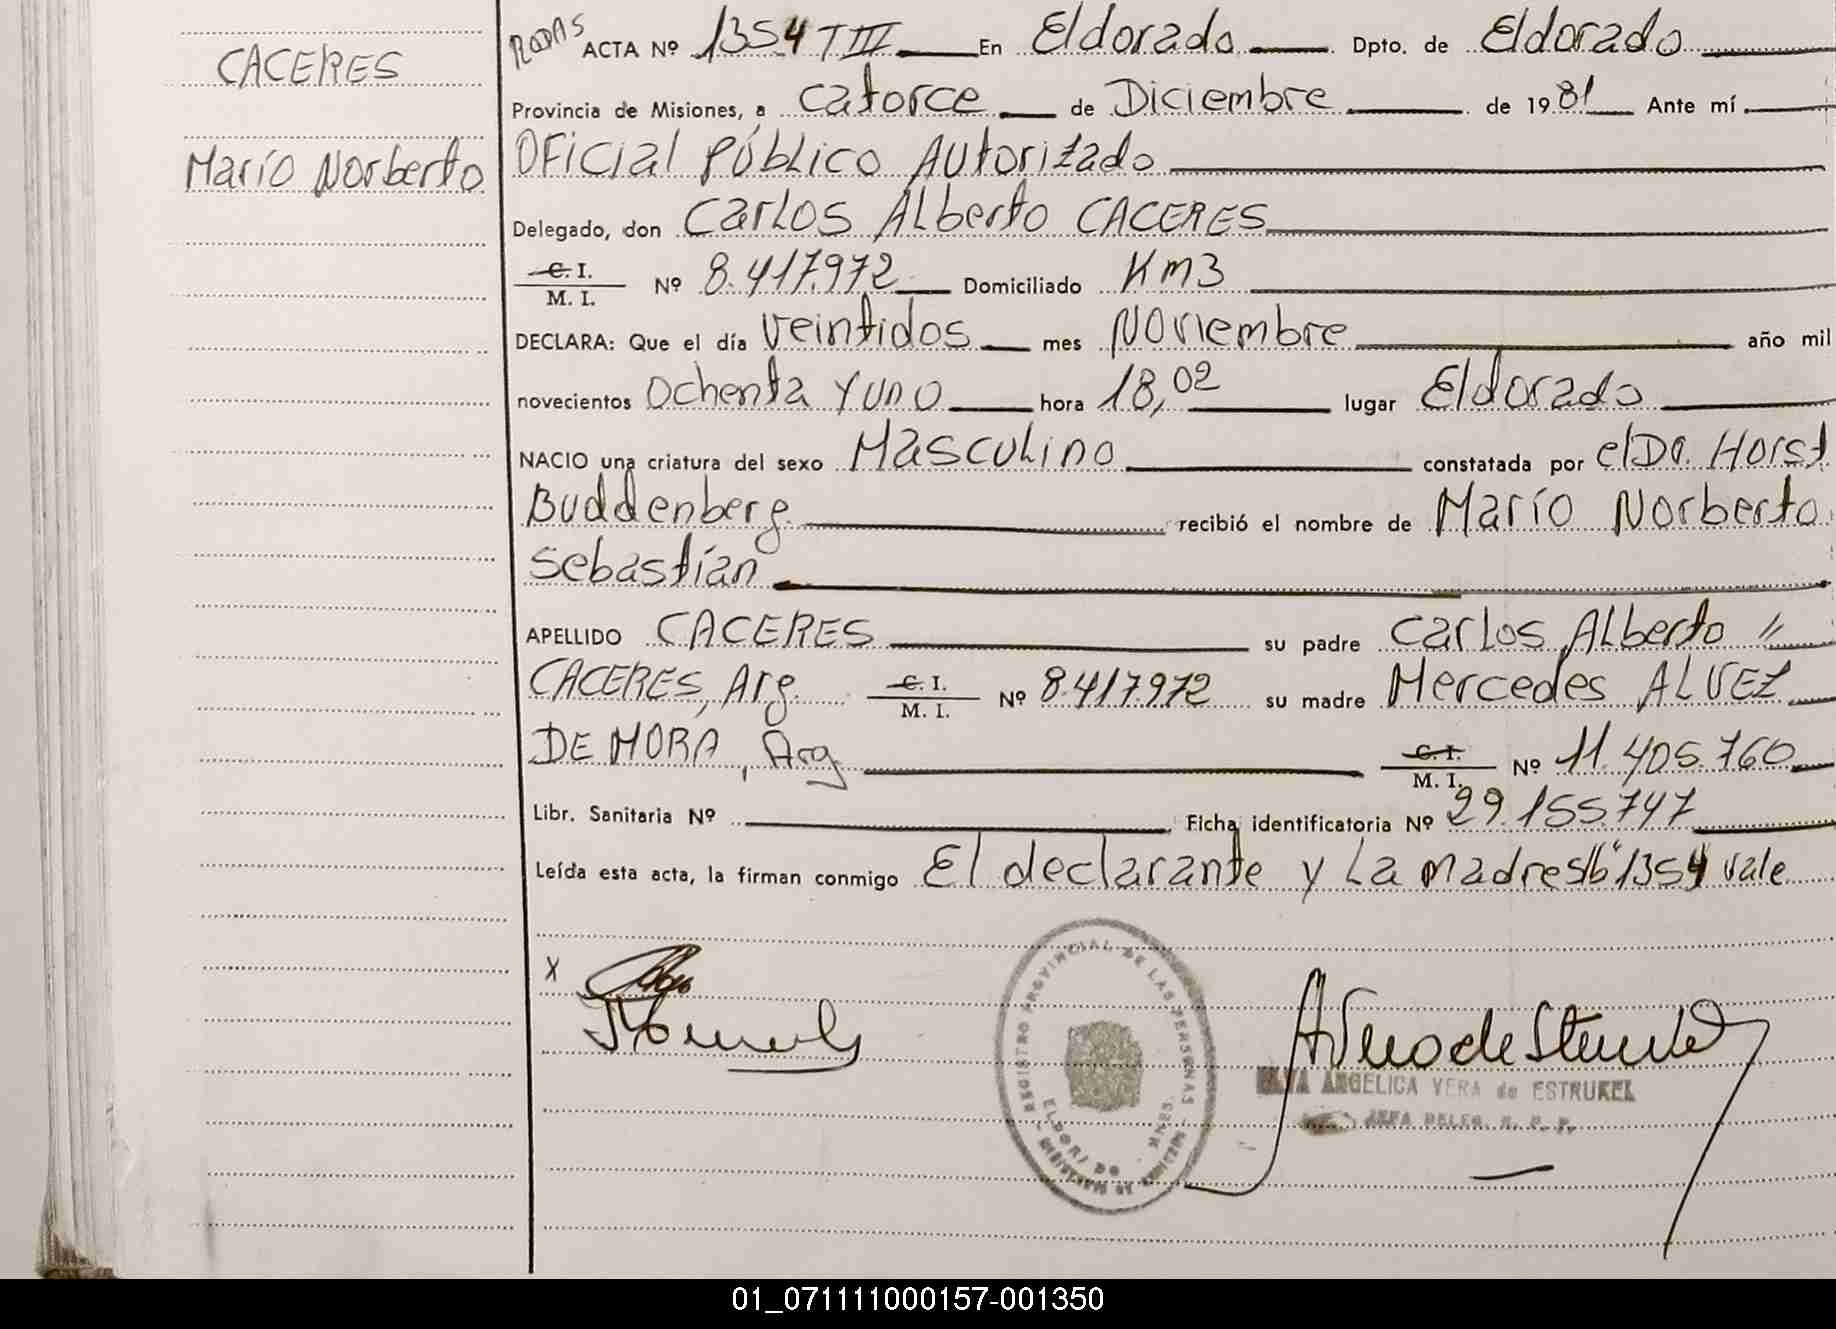 CACERES
Mario Norberto
RODAS ACTA Nº 1354 T III En Eldorado Dpto. de Eldorado
Provincia de Misiones, a catorce de Diciembre de 1981 Ante mí
Oficial Público Autorizado
Delegado, don Carlos Alberto CACERES
C. I.
M. I. Nº 8.417.972 Domiciliado Km3
DECLARA: Que el día veintidos mes Noviembre año mil
novecientos ochenta y uno hora 18,02 lugar Eldorado
NACIO una criatura del sexo Masculino constatada por el Dr. Horst
Buddenberg recibió el nombre de Mario Norberto
Sebastián
APELLIDO CACERES su padre Carlos Alberto //
CACERES, Arg. C. I.
M. I. Nº 8.417.972 su madre Mercedes ALVEZ
DE MORA, Arg C. I.
M. I. Nº 11.405.760
Libr. Sanitaria Nº Ficha identificatoria Nº 29.155.747
Leída esta acta, la firman conmigo El declarante y La madre s/b "1354 vale
X
REGISTRO PROVINCIAL DE LAS PERSONAS
ANGELICA VERA de ESTRUKEL
JEFA DELEG. R. P. P.
01_071111000157-001350